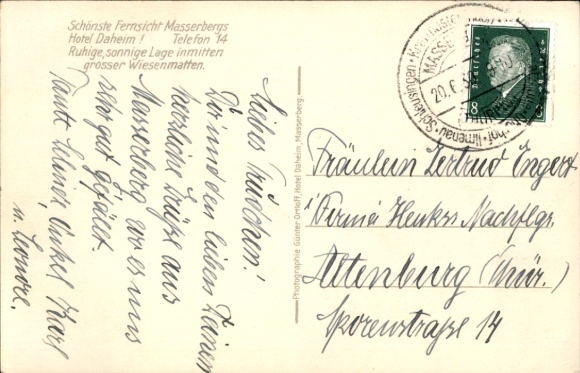 Schönste Fernsicht Masserbergs
Hotel Daheim! Telefon 14
Ruhige, sonnige Lage inmitten
grosser Wiesenmatten.
Liebes Trudchen!
Dir und den lieben Deinen
herzliche Grüße aus
Masserberg wo es uns
sehr gut gefällt.
Tante Onkel Karl
u.
Photographie Günter Ortloff, Hotel Daheim, Masserberg.
MASSERBERG
20.6.
Schleusingen
Ilmenau
8 8
Fräulein Gertrud Engert
Firma Henkes Nachflgr.
Altenburg (Thür.)
Sporenstraße 14